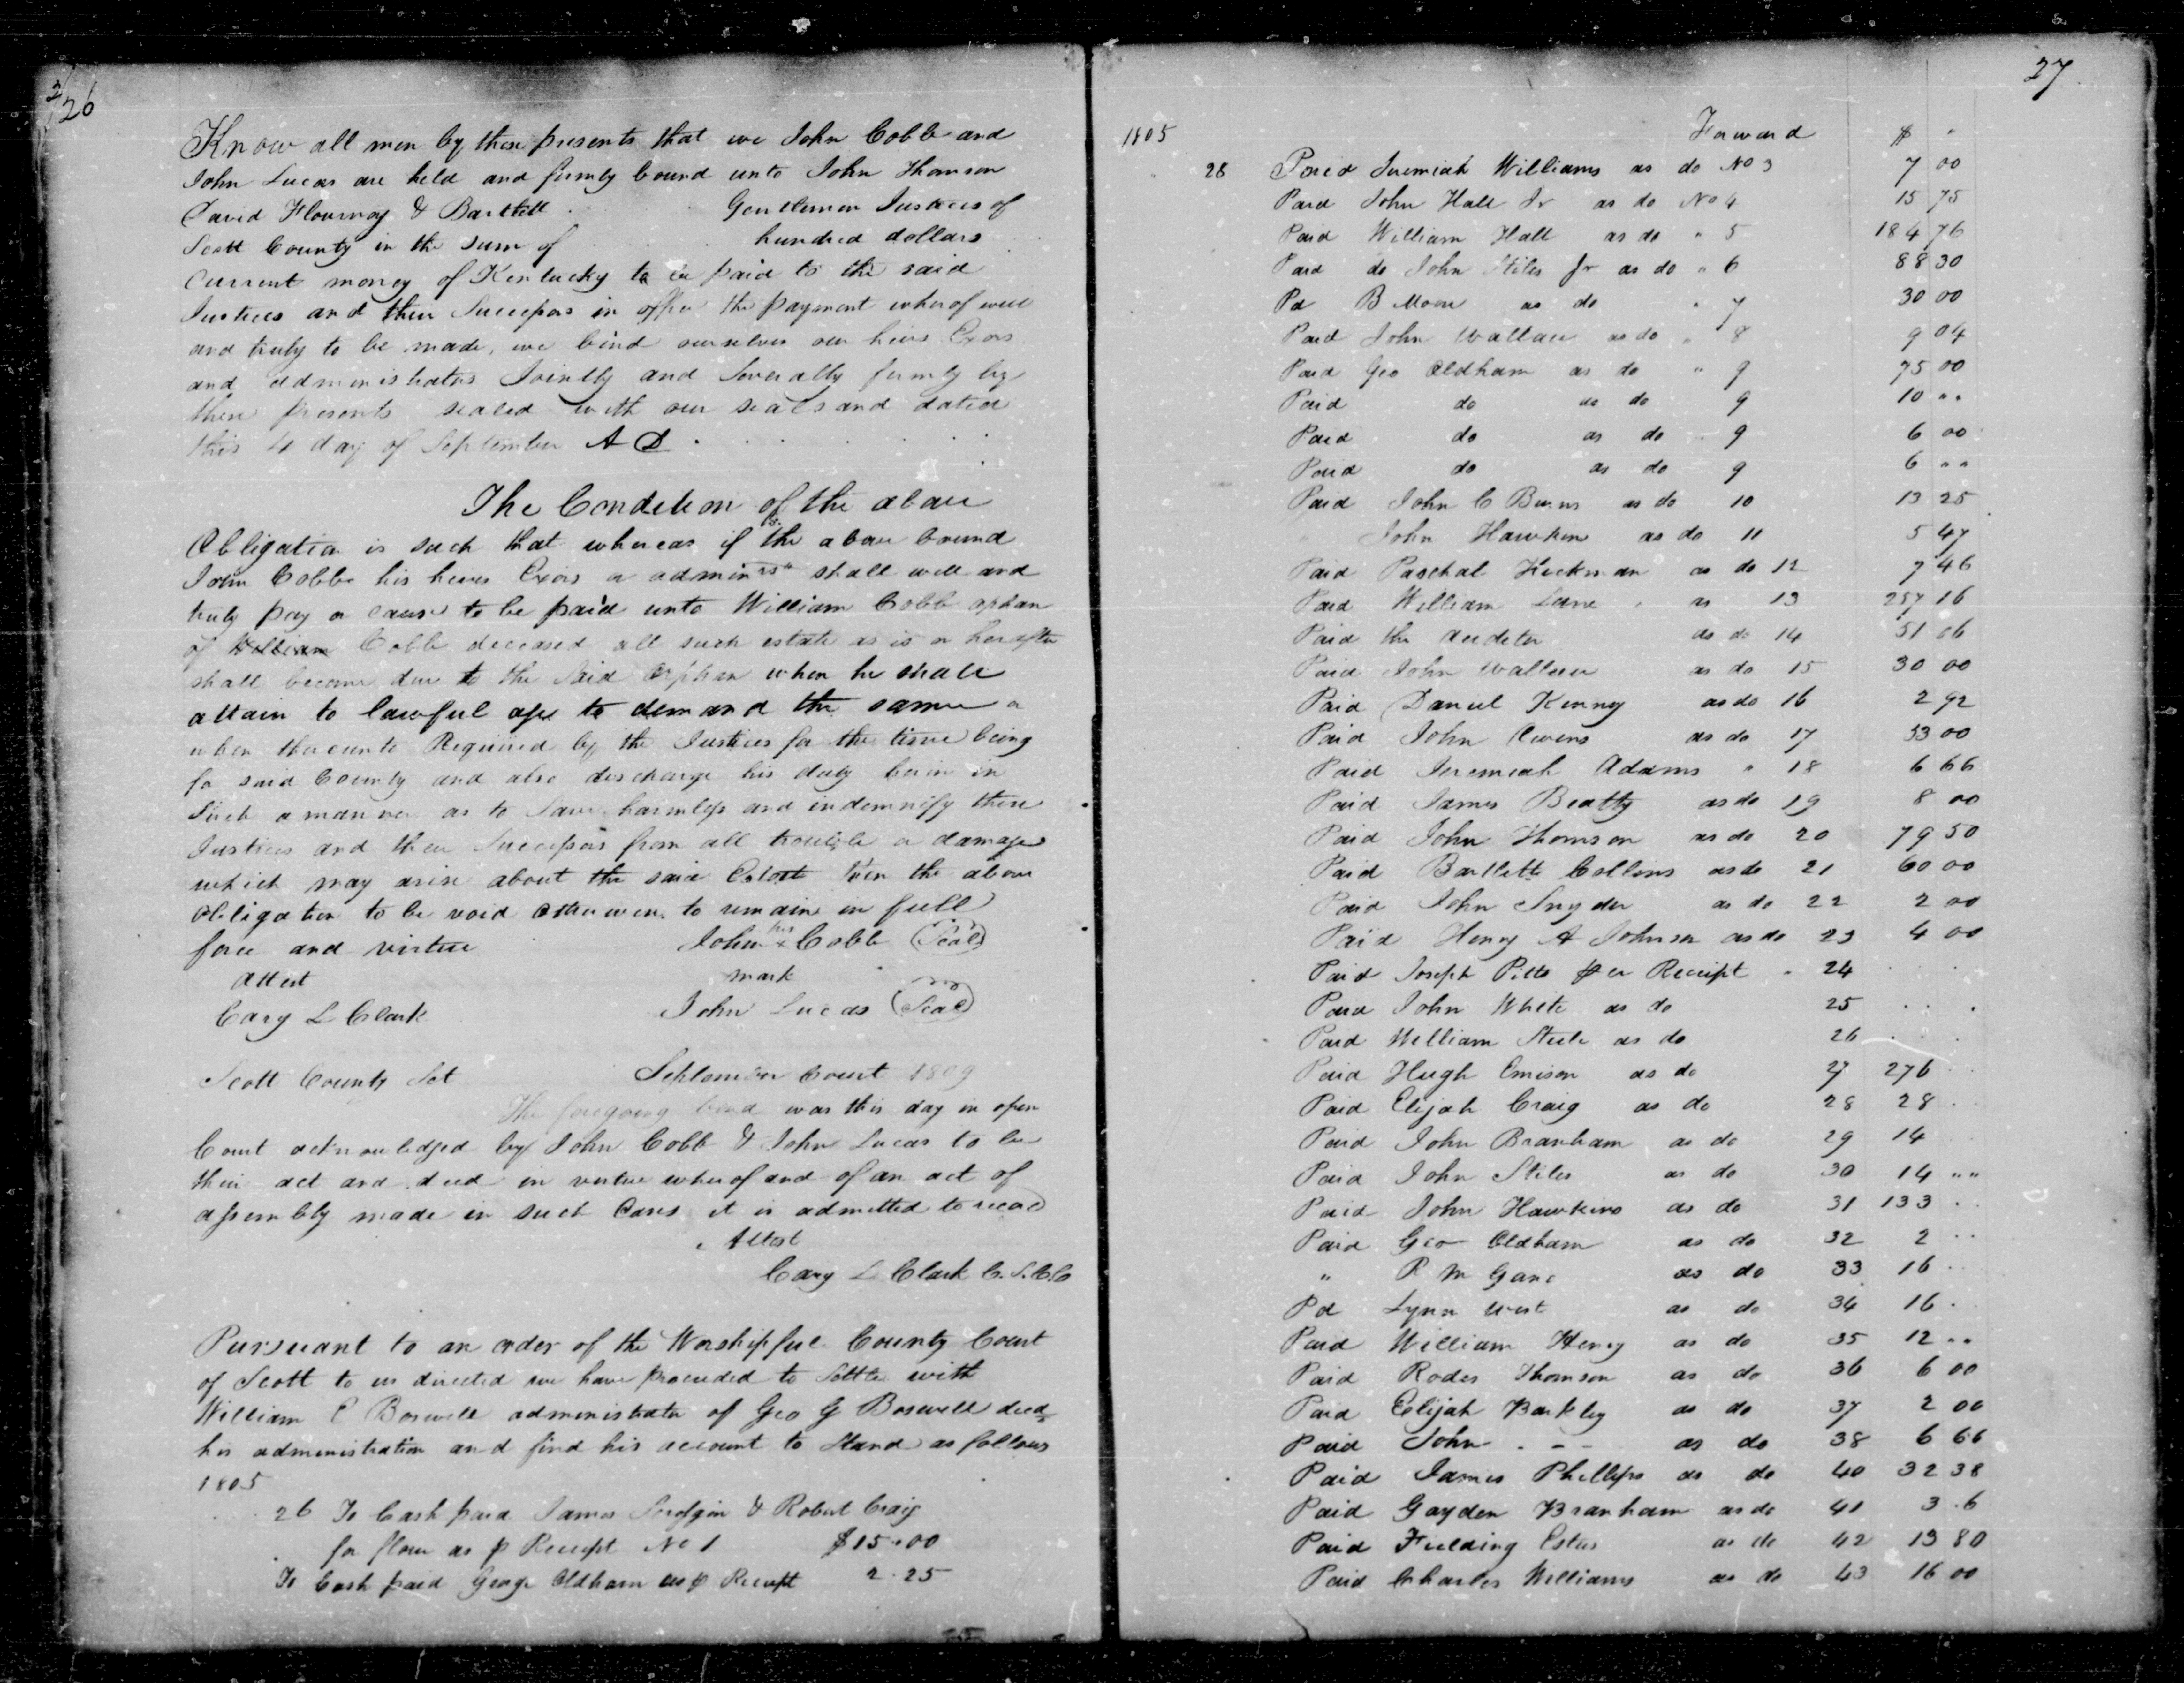 26
Know all men by these presents that we John Cobb and
John Lucas are held and firmly bound unto John Thomson
David Flournoy & Bartlett Gentlemen Justices of
Scott County in the sum of hundred dollars
Current money of Kentucky to be paid to the said
Justices and their Successors in office the payment wherof well
and truly to be made, we bind ourselves our heirs Exors
and administrators Jointly and Severally firmly by
these presents sealed with our seals and dated
this 4 day of September A D
The Condition of the above
Obligation is such that whereas if the above bound
John Cobb his heirs Exors or adminrs shall well and
truly pay or cause to be paid unto William Cobb orphan
of William Cobb deceased all such estate as is or hereafter
shall become due to the said Orphan when he shall
attain to lawful age to demand the same or
when thereunto Required by the Justices for the time being
for said County and also discharge his duty herin in
Such a manner as to Save harmless and indemnify these
Justices and their Successors from all trouble or damages
which may arise about the said Estate then the above
obligation to be void otherwise to remain in full
force and virtue John his x Cobb (Seal)
Attest mark
Cary L Clark John Lucas (Seal)
Scott County Sct September Court 1809
The foregoing bond was this day in open
Court acknowledged by John Cobb & John Lucas to be
their act and deed in virtue wherof and of an act of
assembly made in such Cases it is admitted to record
Attest
Cary L Clark C.S.C.C
Pursuant to an order of the Worshipful County Court
of Scott to us directed we have proceeded to Settle with
William E Boswell administrator of Geo G Boswell decd
his administration and find his account to Stand as follows
1805
26 To Cash paid James & Robert Craig
for flour as p Receipt No 1 $15.00
To Cash paid George Oldham as p Receipt 2.25
27
1805 Forward $
28 Paid Jeremiah Williams as do No 3 7 00
Paid John Hall Jr as do No 4 15 75
Paid William Hall as do " 5 184 76
Paid do John Stiles Jr as do " 6 88 30
Pd B Moore as do " 7 30 00
Paid John Wallace as do " 8 9 04
Paid Geo Oldham as do " 9 75 00
Paid do as do 9 10 ""
Paid do as do 9 6 00
Paid do as do 9 6 ""
Paid John C Burns as do 10 13 25
" John Hawkins as do 11 5 47
Paid Paschal Hickman as do 12 7 46
Paid William Lane " as 13 257 16
Paid the Auditor as do 14 51 06
Paid John Wallace as do 15 30 00
Paid Daniel Kenny as do 16 2 92
Paid John Owens as do 17 33 00
Paid Jeremiah Adams " 18 6 66
Paid James Beatty as do 19 8 00
Paid John Thomson as do 20 79 50
Paid Bartlett Collins as do 21 60 00
Paid John Snyder as do 22 2 00
Paid Henry A Johnson as do 23 4 00
Paid Joseph Pitts per Receipt " 24
Paid John White as do 25
Paid William Steele as do 26
Paid Hugh Emison as do 27 276
Paid Elijah Craig as do 28 28
Paid John Branham as do 29 14
Paid John Stiles as do 30 14 ""
Paid John Hawkins as do 31 133
Paid Geo Oldham as do 32 2
" R M Gano as do 33 16
Pd Lynn West as do 34 16
Paid William Henry as do 35 12 ""
Paid Rodes Thomson as do 36 6 00
Paid Elijah Barkley as do 37 2 00
Paid John . - - as do 38 6 66
Paid James Phillips as do 40 32 38
Paid Gayden Branham as do 41 3 .6
Paid Fielding Estes as do 42 13 80
Paid Charles Williams as do 43 16 00